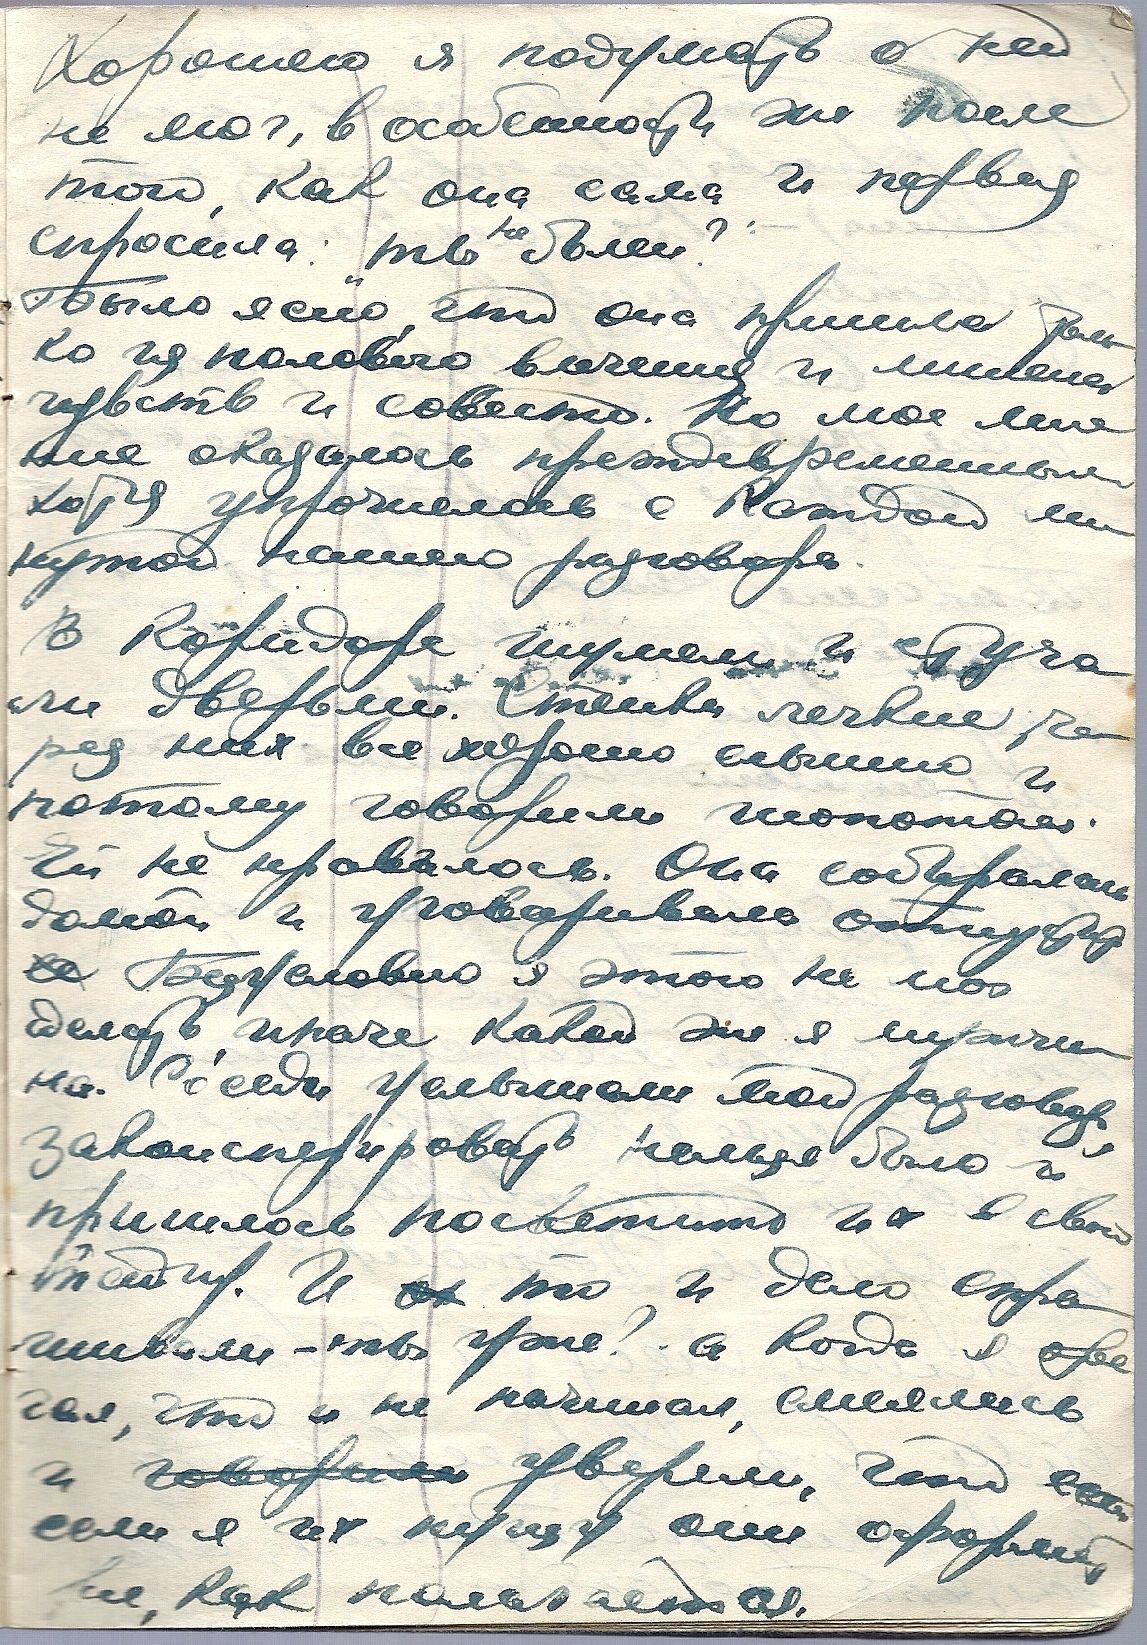 Хорошего я подумать о ней
не мог, в особенности же после
того, как она сама и первая
спросила: „ты не болен?"
Было ясно, что она пришла толь
ко из полового влечения и лишена
чувств и совести. Но мое мне
ние оказалось преждевременным
хотя упрочилось с каждой ми
нутой нашего разговора.
В коридоре шумели и стуча
ли дверьми. Стенки легкие, че
рез них все хорошо слышно и
потому говорили шопотом.
Ей не нравилось. Она собиралась
домой и уговаривала отпустить
ее Безусловно я этого не мог
сделать, иначе какой же я мужчи
на. Соседи услышали мой разговор,
законспирировать нельзя было и
пришлось посвятить их в свою
беседу. И то и дело спра
шивали - "ты уже? а когда я отве
чал, что и не начинал, смеялись
и говорили уверяли, что если
если я их пущу они оформят
ее, как полагается.